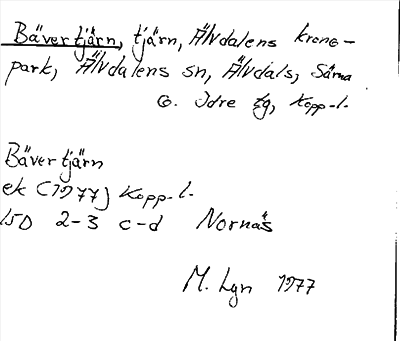 Bävertjärn, tjärn, Älvdalens krono-
park, Älvdalens sn, Älvdals, Särna
o. Idre tg, Kopp.l.
Bävertjärn
ek (1977) Kopp.l.
15D 2-3 c-d Nornäs
M. Lgn 1977